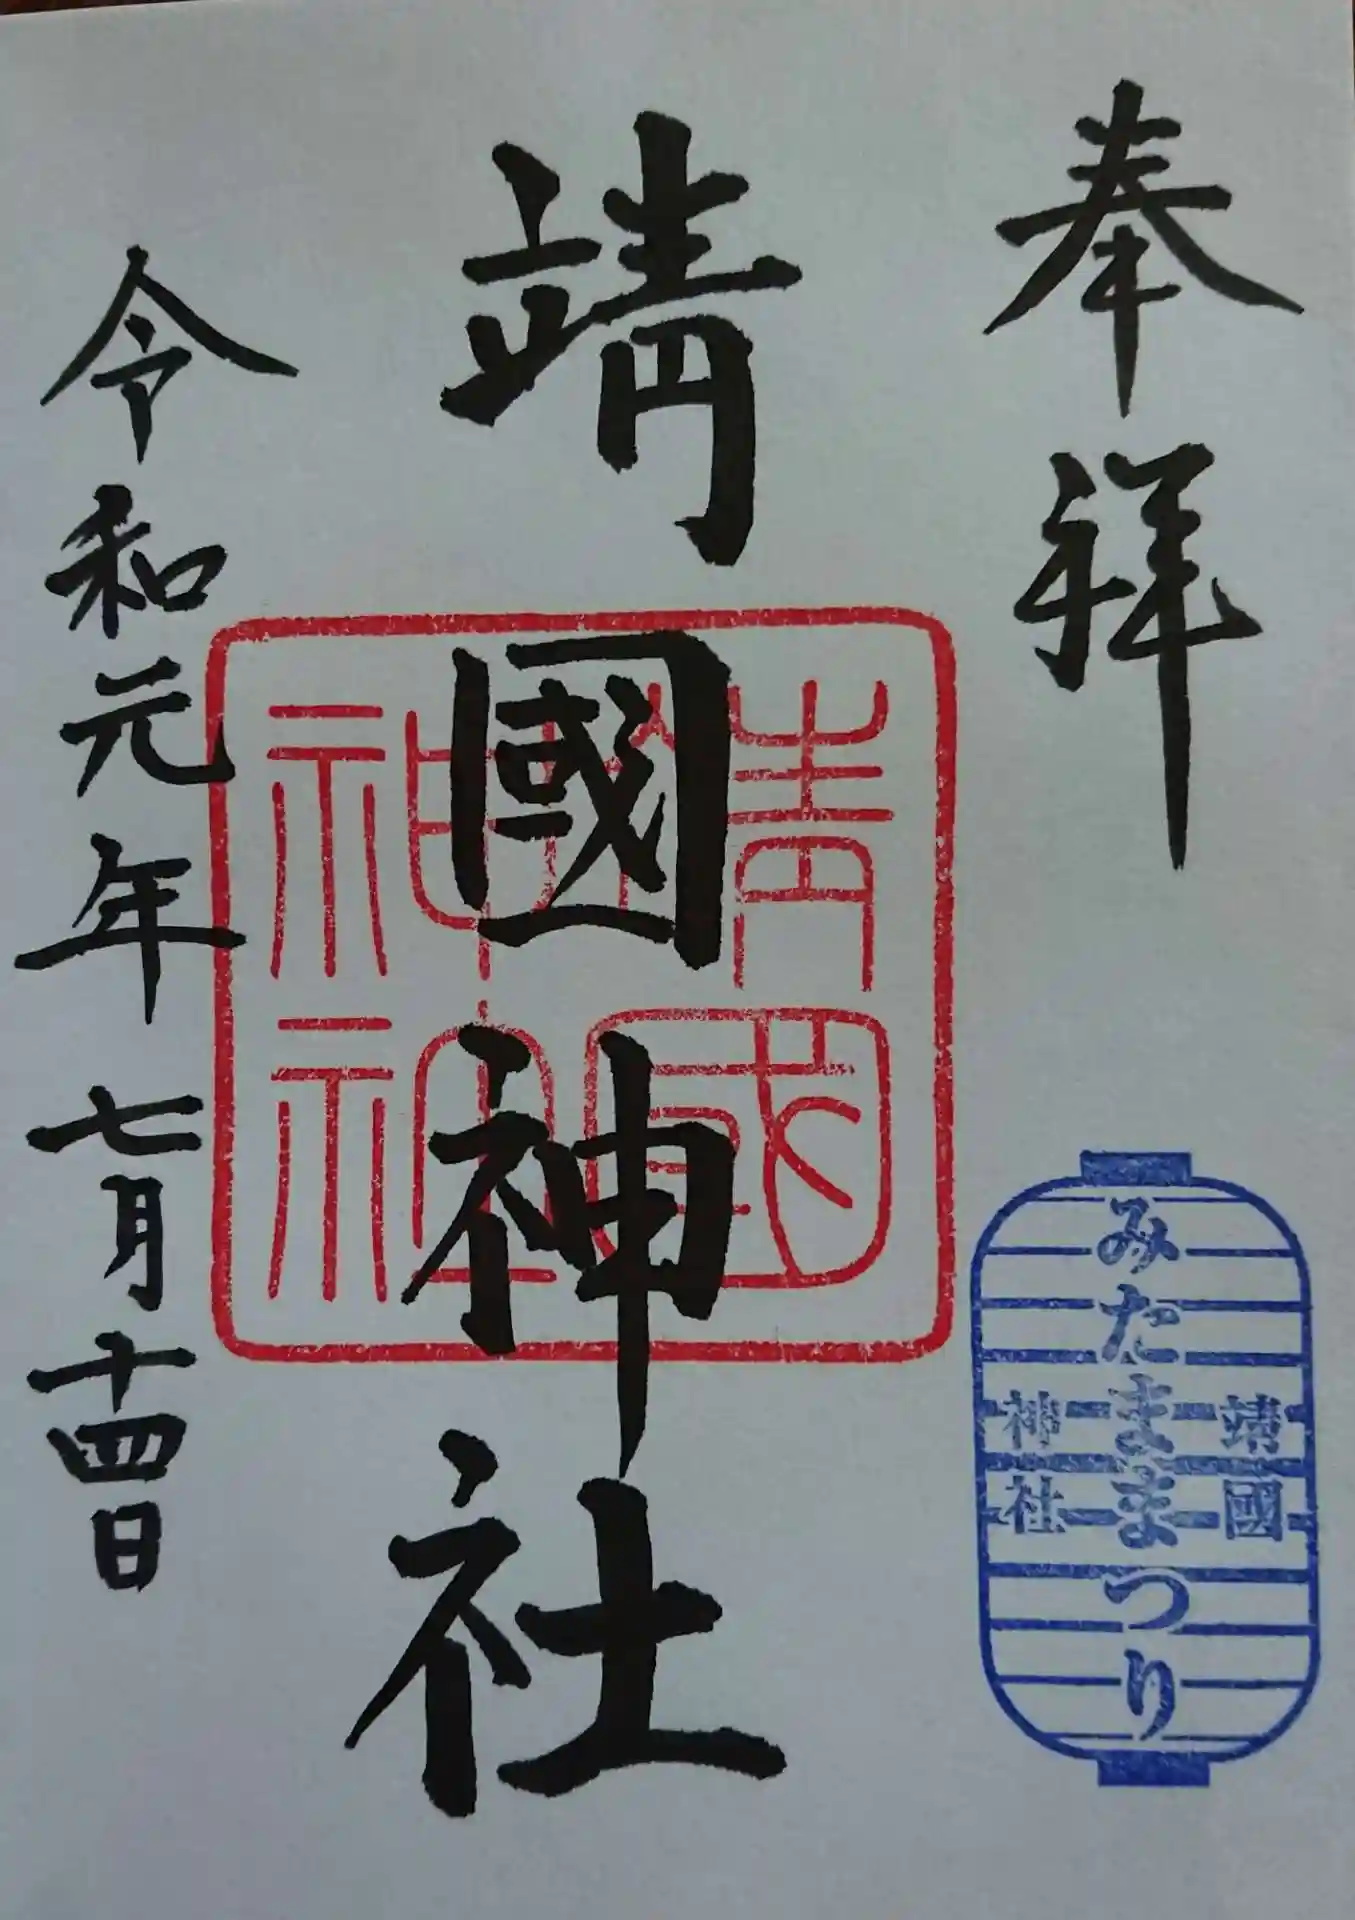 奉拝
靖國神社
靖國神社
令和元年七月十四日
靖國
みたままつり
神社